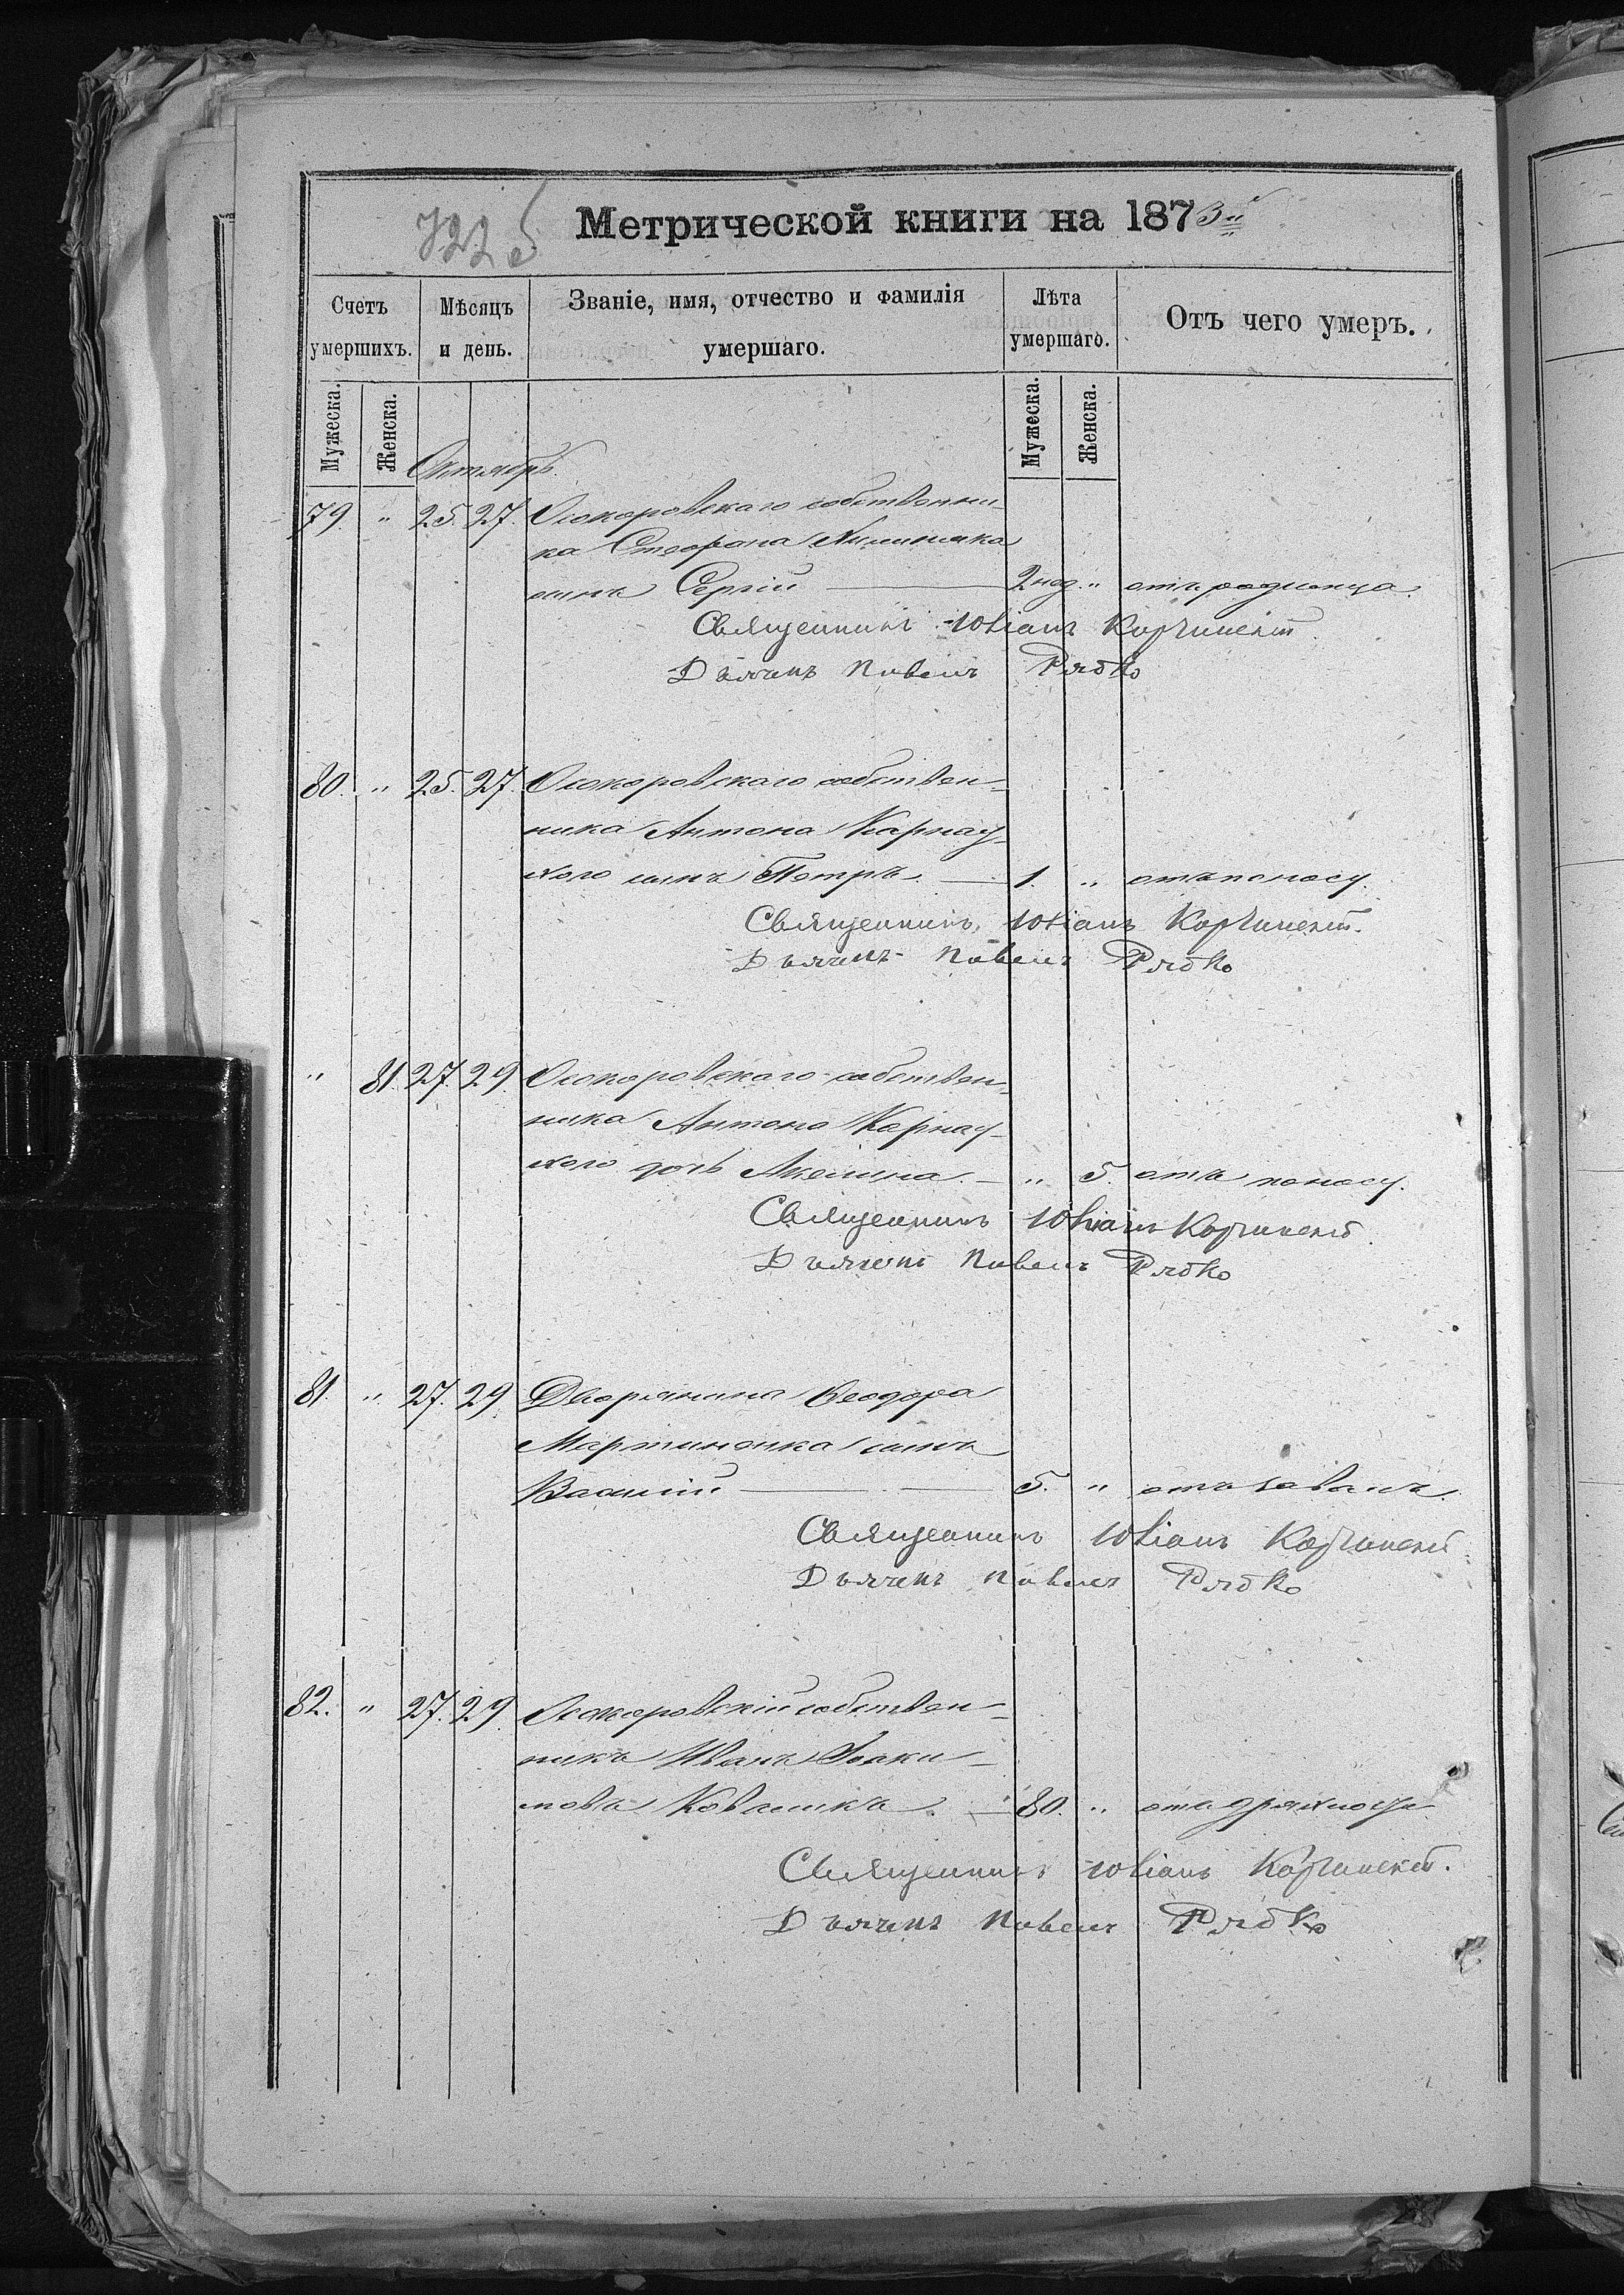 Метрической книги на 1873й
Счетъ умершихъ.
Мѣсяцъ и день.
Званіе, имя, отчество и фамилія умершаго.
Лѣта умершаго.
Отъ чего умеръ.
Мужеска. Женска. Мужеска. Женска.
Октябрь.
79. " 25. 27. Осокоровскаго собственни-
ка Стефана
сынъ Сергій 2 нед. " отъ родимца.
Священникъ Юліанъ Корчинскій
Дьячекъ Павелъ Рябко
80. " 25. 27. Осокоровскаго собствен-
ника Антона Карнау-
хого сынъ Петръ. 1. " отъ поносу.
Священникъ Юліанъ Корчинскій.
Дьячекъ Павелъ Рябко
" 81. 27. 29. Осокоровскаго собствен-
ника Антона Карнау-
хого дочь Акелина. " 5. отъ поносу.
Священникъ Юліанъ Корчинскій.
Дьячекъ Павелъ Рябко
81. " 27. 29. Дворянина Ѳеодора
Мартиненка сынъ
Василій 5. " отъ
Священникъ Юліанъ Корчинскій
Дьячекъ Павелъ Рябко
82. " 27. 29. Осокоровскій собствен-
никъ Иванъ Іоаки-
мовъ Коваликъ. 80. " отъ дряхлости
Священникъ Юліанъ Корчинскій.
Дьячекъ Павелъ Рябко